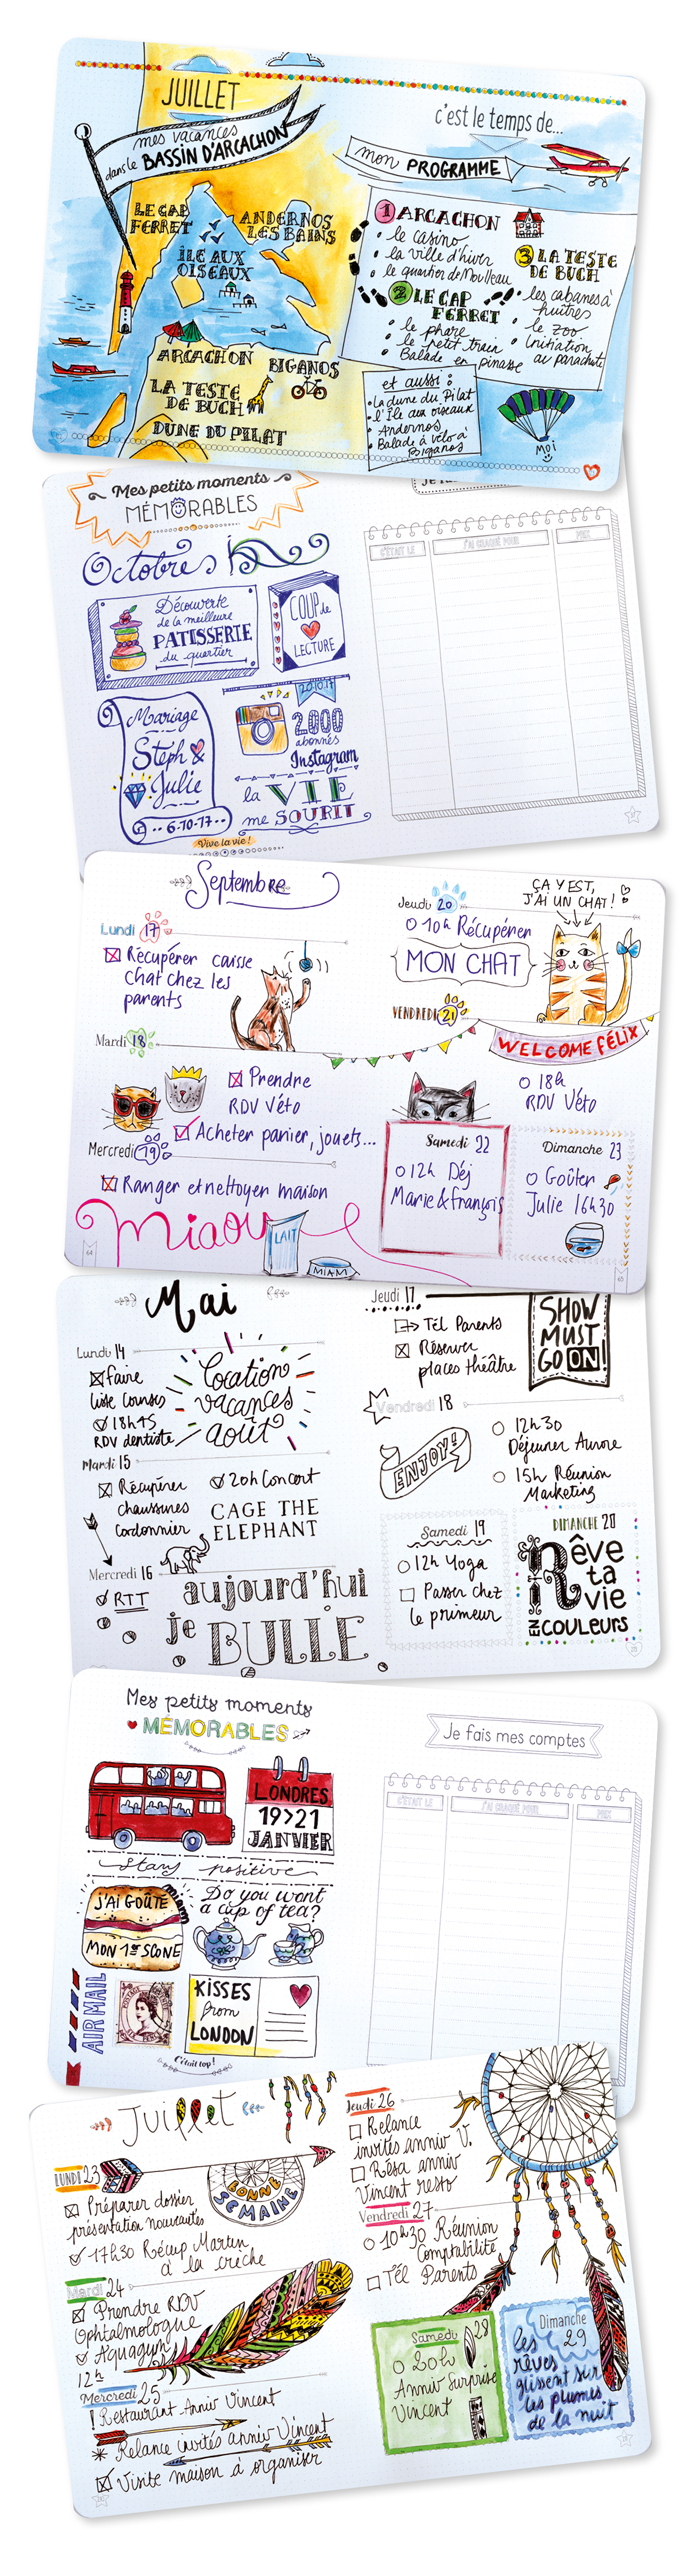 JUILLET
mes vacances
dans le BASSIN D'ARCACHON
LE CAP
FERRET
ANDERNOS
LES BAINS
ÎLE AUX
OISEAUX
ARCACHON
BIGANOS
LA TESTE
DE BUCH
DUNE DU PILAT
c'est le temps de...
mon PROGRAMME
1 ARCACHON
• le casino
• la ville d'hiver
• le quartier de Moulleau
2 LE CAP
FERRET
• le phare
• le petit train
• Balade en pinasse
3 LA TESTE
DE BUCH
• les cabanes à
huîtres
• le zoo
• Initiation
au parachute
et aussi :
• La dune du Pilat
• l'Île aux oiseaux
• Andernos
• Balade à vélo à
Biganos
Moi
Mes petits moments
MÉMORABLES
Octobre
Découverte
de la meilleure
PATISSERIE
du quartier
COUP de
LECTURE
Mariage
Steph &
Julie
6-10-17
20.10.17
2000
abonnés
Instagram
la VIE
me SOURIT
Vive la vie !
C'ÉTAIT LE
J'AI CRAQUÉ POUR
PRIX
Septembre
Lundi 17
Récupérer caisse
chat chez les
parents
Mardi 18
Prendre
RDV Véto
Acheter panier, jouets...
Mercredi 19
Ranger et nettoyer maison
Miaou
LAIT
MIAM
64
Jeudi 20
ÇA Y EST,
J'AI UN CHAT !
10h Récupérer
MON CHAT
VENDREDI 21
WELCOME FÉLIX
18h
RDV Véto
Samedi 22
12h Déj
Marie & François
Dimanche 23
Goûter
Julie 16h30
65
Mai
Lundi 14
faire
liste courses
18h45
RDV dentiste
Location
vacances
août
Mardi 15
Récupérer
chaussures
cordonnier
20h Concert
CAGE THE
ELEPHANT
Mercredi 16
RTT
aujourd'hui
je BULLE
Jeudi 17
Tél Parents
Réserver
places théâtre
SHOW
MUST
GO ON!
Vendredi 18
ENJOY!
12h30
Déjeuner Aurore
15h Réunion
Marketing
Samedi 19
12h Yoga
Passer chez
le primeur
DIMANCHE 20
Rêve
ta
vie
EN COULEURS
Mes petits moments
MÉMORABLES
LONDRES
19>21
JANVIER
Stay positive
J'AI GOÛTÉ
MON 1er SCONE
miam
Do you want
a cup of tea?
AIR MAIL
KISSES
from
LONDON
C'était top !
Je fais mes comptes
C'ÉTAIT LE
J'AI CRAQUÉ POUR
PRIX
Juillet
LUNDI 23
Préparer dossier
présentation nouveautés
17h30 Récup Martin
à la crèche
BONNE
SEMAINE
Mardi 24
Prendre RDV
Ophtalmologue
Aquagym
12h
Mercredi 25
! Restaurant Anniv Vincent
* Relance invités anniv Vincent
Visite maison à organiser
Jeudi 26
Relance
invités anniv V.
Résa anniv
Vincent resto
Vendredi 27
10h30 Réunion
Comptabilité
Tél Parents
Samedi 28
20h
Anniv Surprise
Vincent
Dimanche
29
les
rêves
glissent sur
les plumes
de la nuit